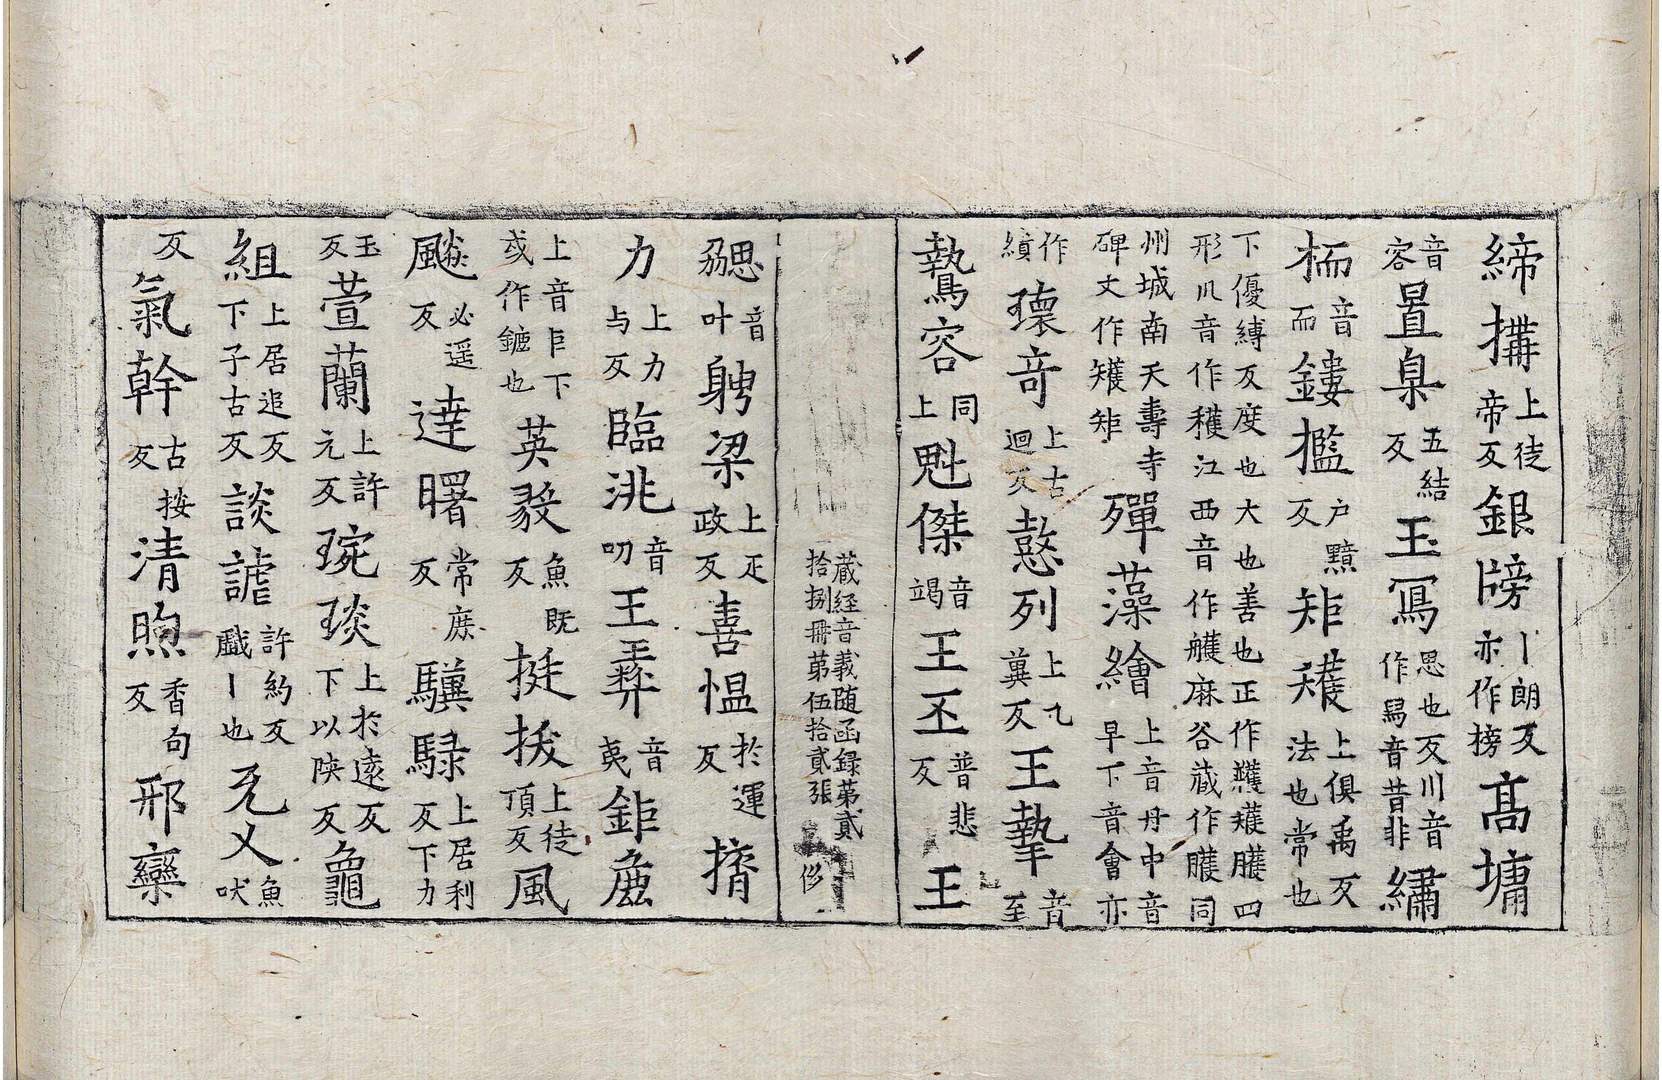 締搆上徒帝反銀牓丨朗反亦作榜高墉
音容置臬五結反玉冩思也反川音作舄音昔非繡
栭音而鏤檻户黤反矩矱上俱禹反法也常也
下優縛反度也大也善也正作蠖矱臒四形川音作穫江西音作艧麻谷蔵作臒同
州城南天壽寺碑文作矱矩殫藻繪上音丹中音早下音會亦
作繢瓌奇上古迴反懿列上乀冀反王摯音至
鷙容同上魁傑音竭王丕普悲反王
蔵経音義随函録第貳
拾捌冊第伍拾貳張
勰音叶聘梁上疋政反喜愠於運反
力上力与反臨洮音叨王彞音夷鉅鹿
上音巨下或作鏕也英毅魚既反挺拔上徒頂反風
飈必遥反達曙常庶反驥騄上居利反下力
玉反萱蘭上許元反琬琰上於遠反下以陜反龜
組上居追反下子古反談謔許約反戱丨也旡乂魚吠
反氣幹古按反清煦香句反邢欒